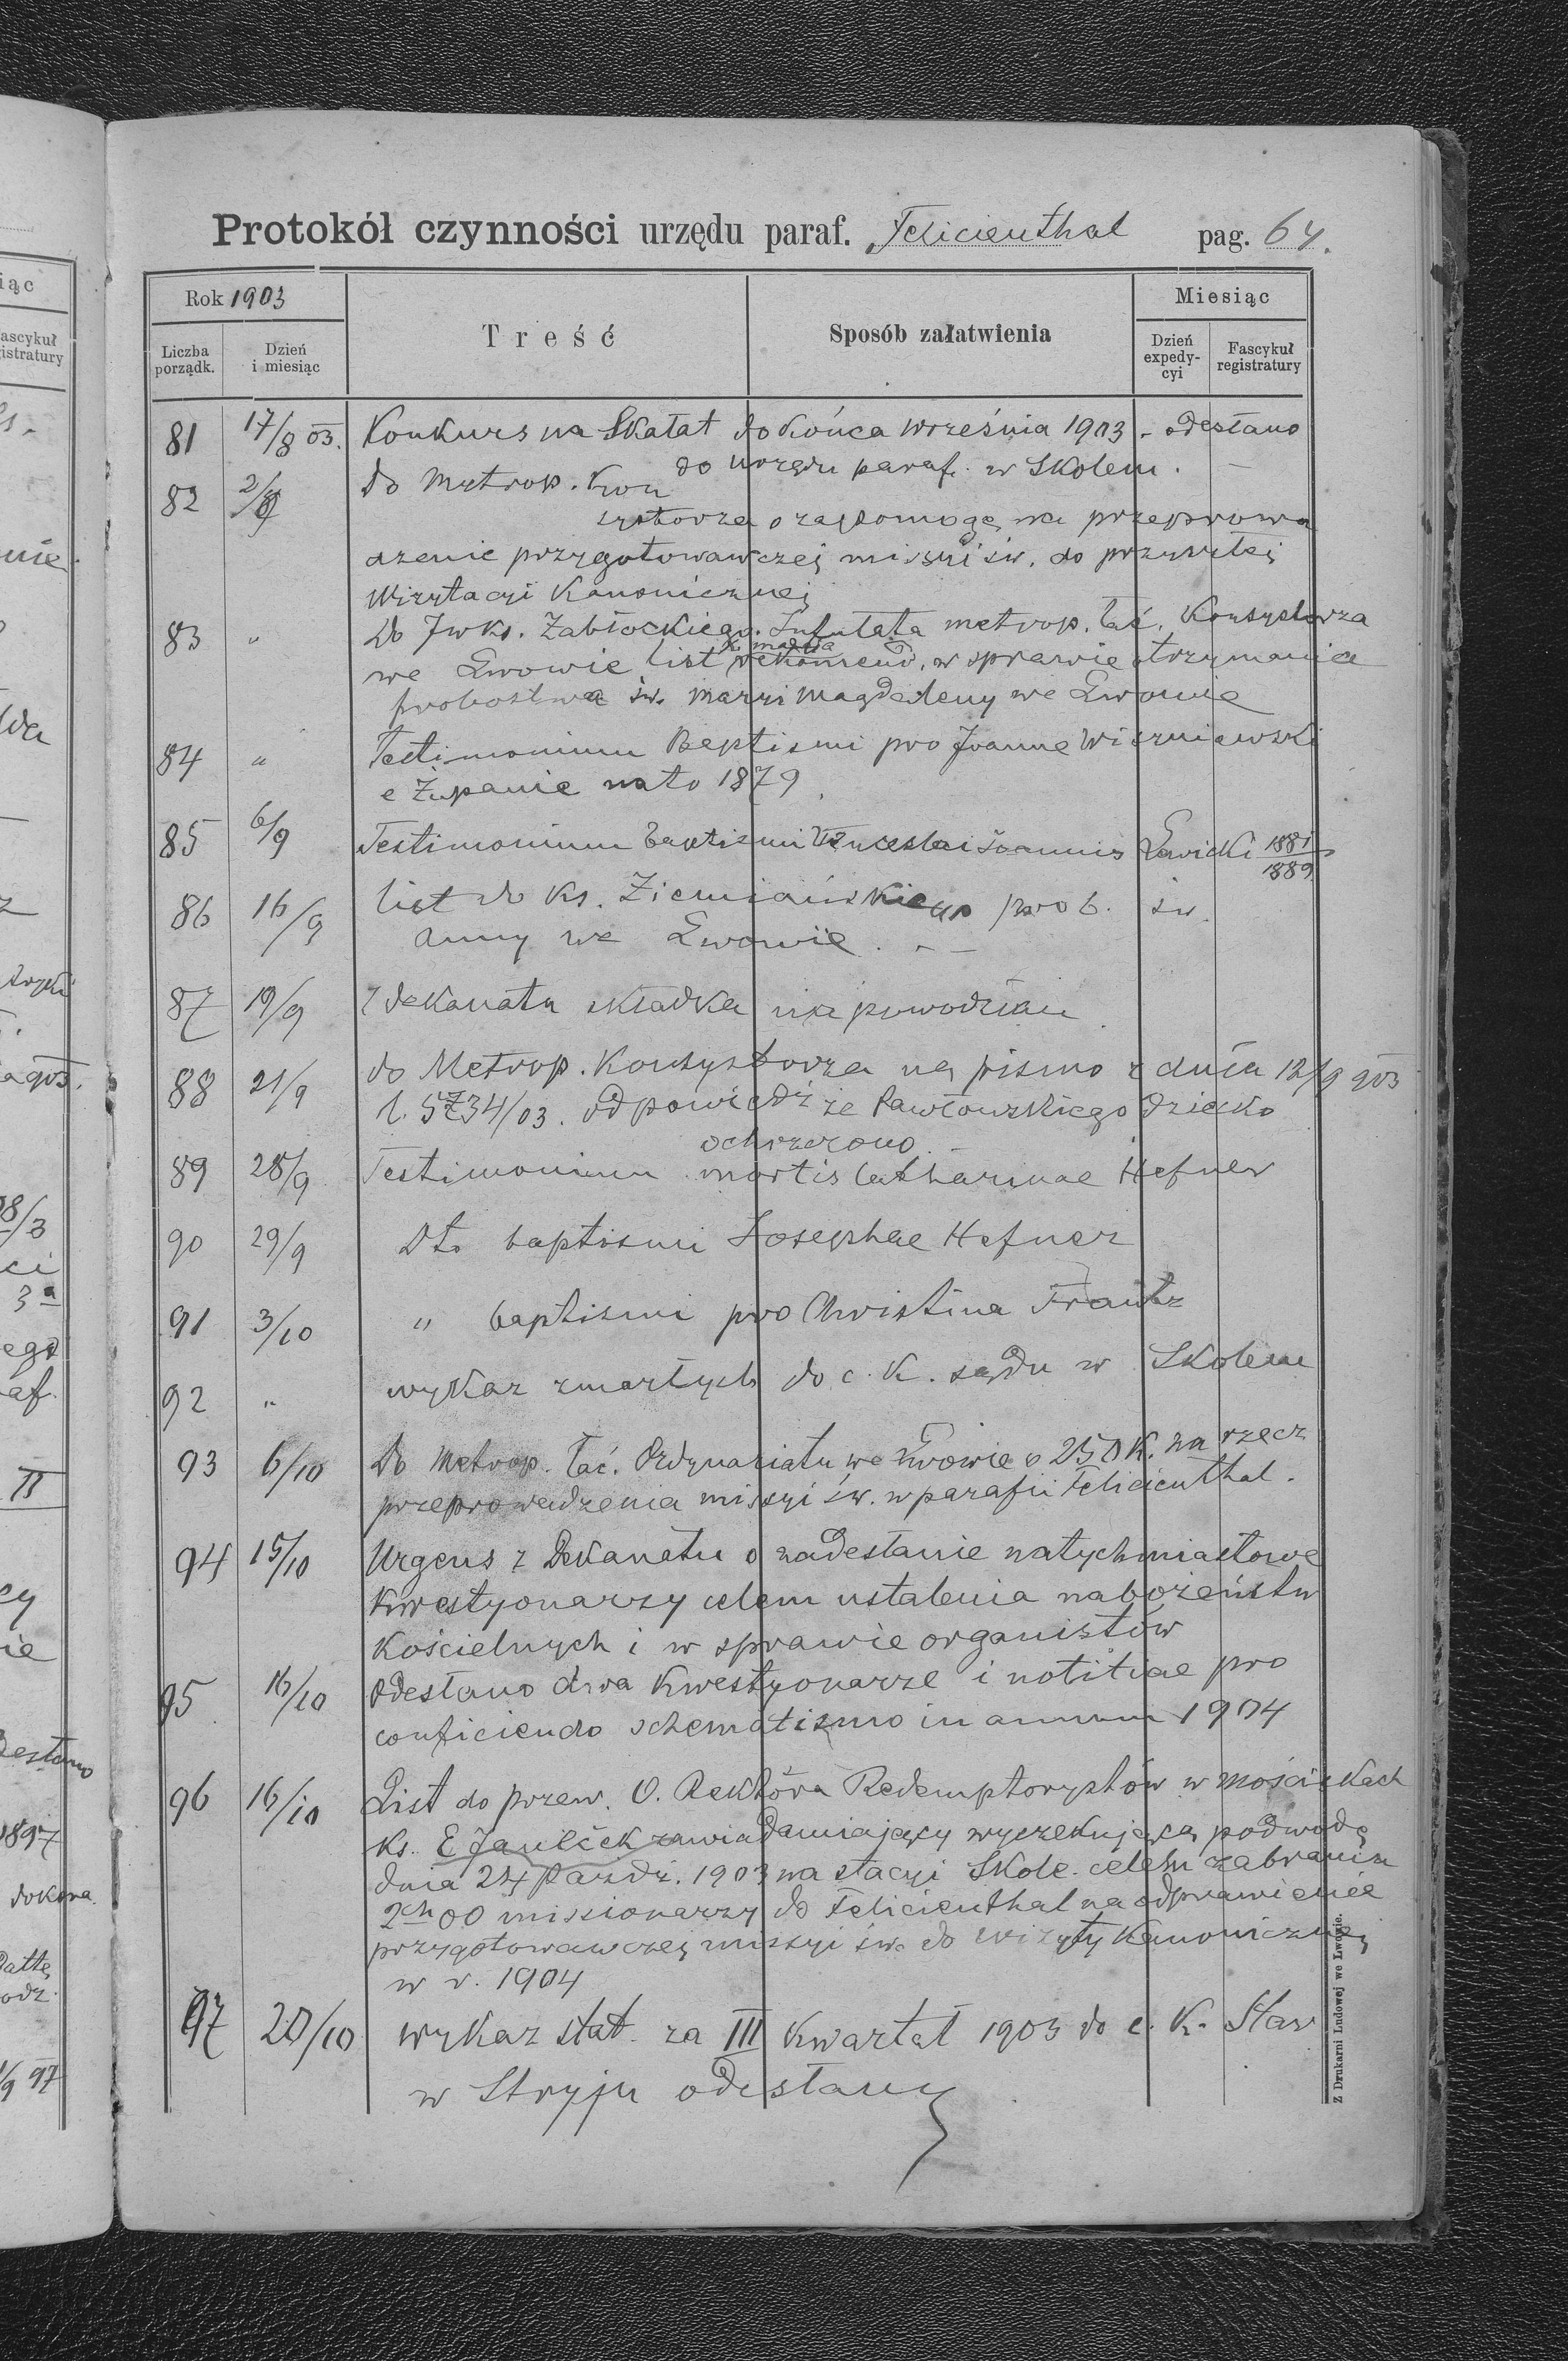 Protokół czynności urzędu paraf. Felicienthal pag. 64.
Rok 1903
Treść
Sposób załatwienia
Miesiąc
Liczba porządk.
Dzień i miesiąc
Dzień expedy-cyi
Fascykuł registratury
81 17/8 03. Konkurs na Skałat do końca września 1903 - odesłano
do urzędu paraf. w Skolem. —
82 2/9 do Metrop. Kon
systorza o zapomogę na przeprowa
dzenie przygotowawczej missyi św. do przyszłej
Wizytacyi Kanonicznej
83 " Do Jwks. Zabłockiego. Infułata metrop. łać. Konsystorza
we Lwowie list rekomend, w sprawie otrzymania
probostwa św. Maryi Magdaleny we Lwowie
84 " Testimonium Baptismi pro Joanne Wiszniewski
e Żupanie nato 1879
85 6/9 Testimonium baptismi Wenceslai Joannis Lawicki 1881
1889
86 16/9 list do ks. Ziemiańskiego prob. św.
Anny we Lwowie. —
87 19/9 z dekanatu składka na powodzian
88 21/9 do Metrop. Konsystorza na pismo z dnia 12/9 903
l. 5734/03. odpowiedź że Pawłowskiego dziecko
ochrzczono. —
89 28/9 Testimonium mortis Catharinae Hefner
90 29/9 Dto baptismi Josephae Hefner
91 3/10 " baptismi pro Christina Frantz
92 " wykaz zmarłych do c. k. sądu w Skolem
93 6/10 Do Metrop. łać. Ordynariatu we Lwowie o 250 K. na rzecz
przeprowadzenia missyi św. w parafii Felicienthal.
94 15/10 Urgens z Dekanatu o nadesłanie natychmiastowe
kwestyonarzy celem ustalenia nabożeństw
Kościelnych i w sprawie organistów
95 16/10 Odesłano dwa Kwestyonarze i notitiae pro
conficiendo schematismo in annum 1904
96 16/10 List do przew. O. Rektóra Redemptorystów w Mościskach
ks. E Janíček zawiadamiający wyczekującą podwodę
dnia 24 Paźdź. 1903 na stacyi Skole celem zabrania
2ch OO missionarzy do Felicienthal na odprawienie
przygotowawczej missyi św. do wizyty Kanonicznej
w r. 1904
97 20/10 wykaz stat. za III kwartał 1903 do c. k. Star
w Stryju odesłany
Z Drukarni Ludowej we Lwowie.